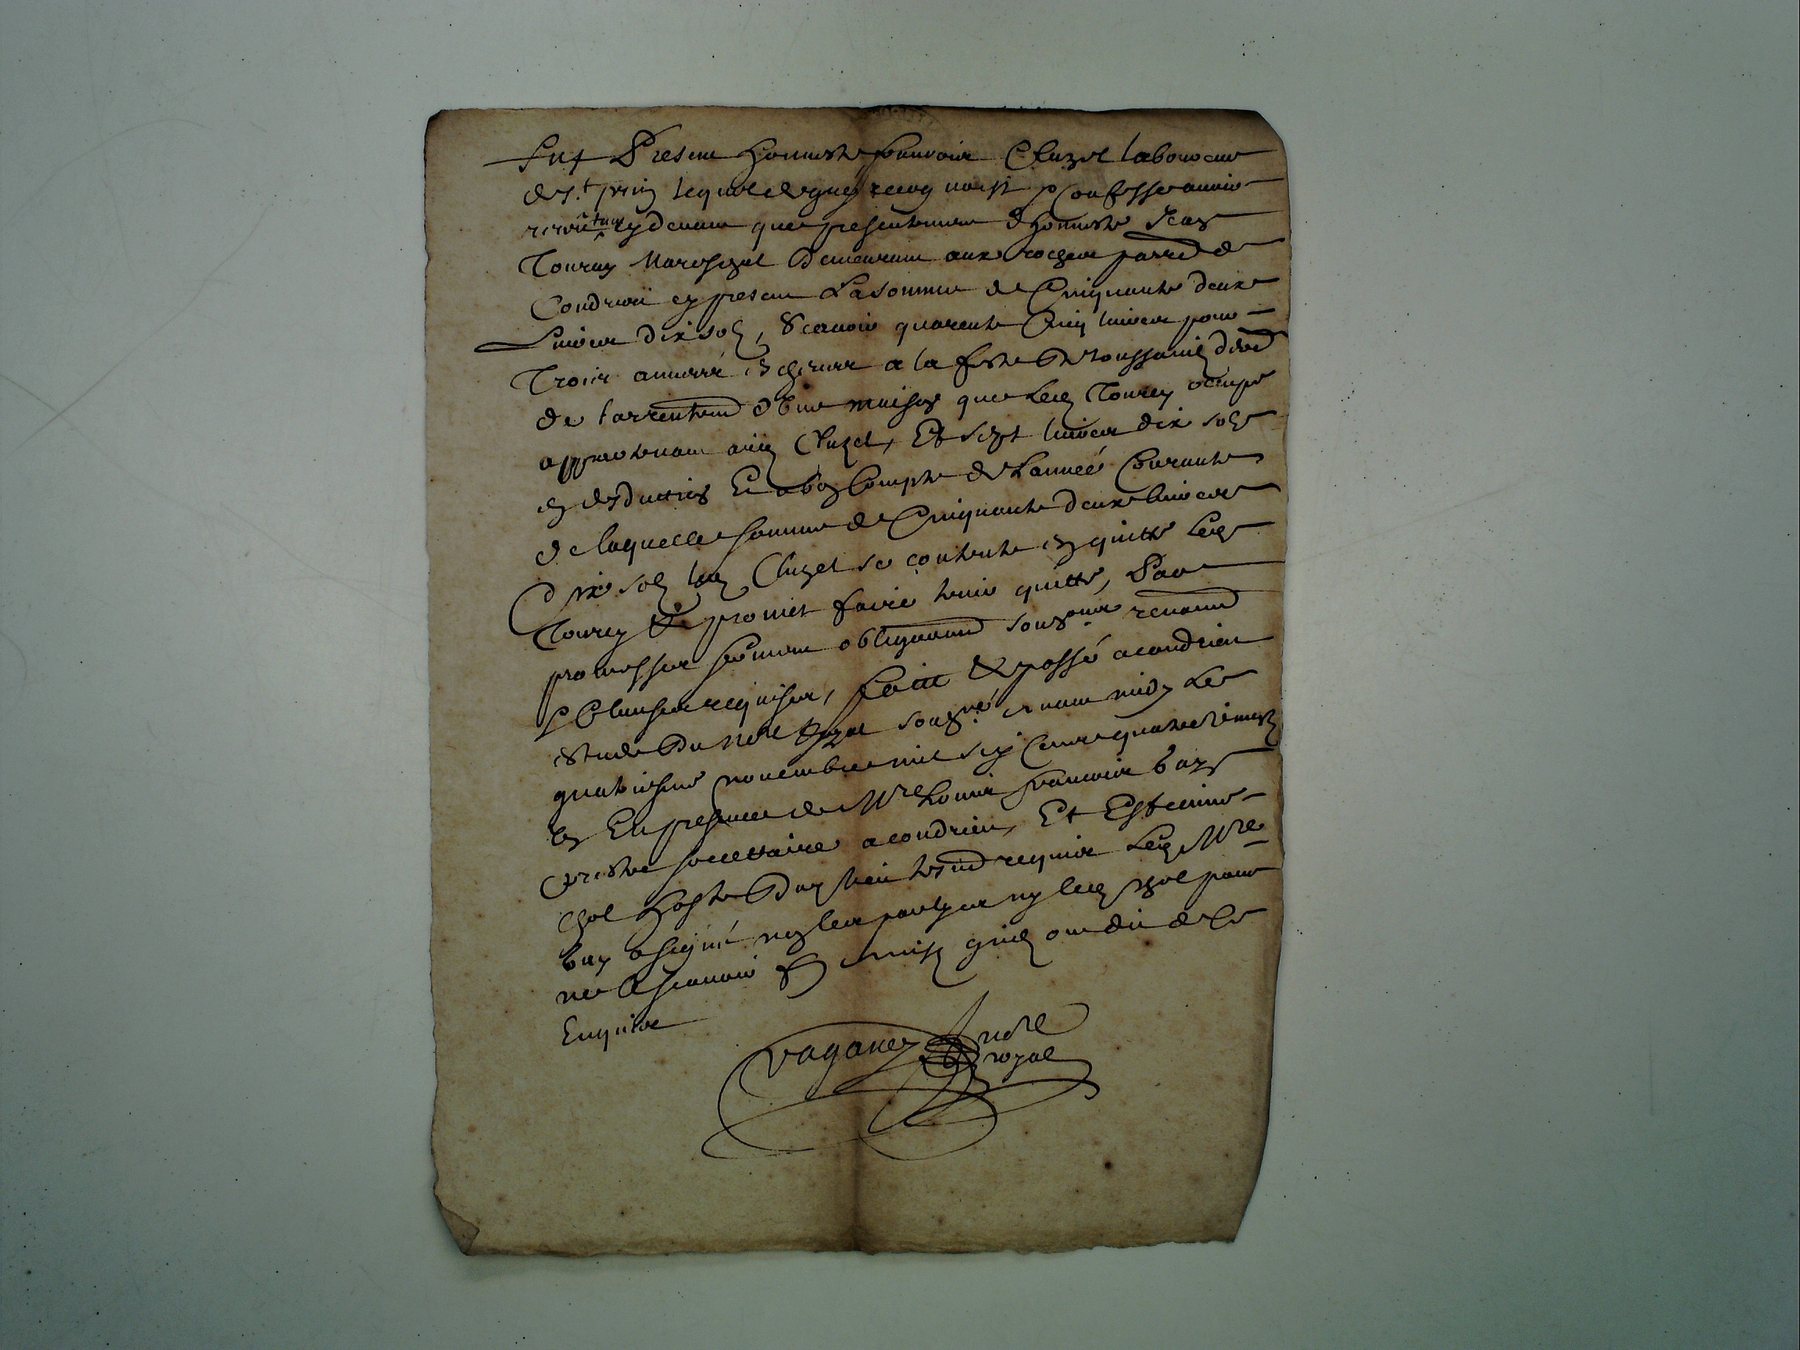 Fut Present honneste francois Cluzel laboureur
de St prin lequel de gré recognoist & confesse avoir
receu tant cydevant que presentement d'honneste Jean
Tourey Mareschal demeurant aux roches parroisse de
Condrieu cy present La somme de Cinquante deux
Livres dix solz, Scavoir quarente Cinq livres pour
Trois années escheues a la feste de toussainctz dernier
de l'arrentement d'une maison que led Tourey occupe
appartenant aud Cluzel, Et sept livres dix solz
en desduction Et a bon Compte de L'année Courante
de laquelle somme de Cinquante deux livres
Dix solz led Cluzel se contente en quitte led
Tourey & promet faire tenir quitte, Par
promesses serment obligations soubmissions renonciations
& Clauses requises, faict & passé a condrieu
estude du nore royal soubsné avant midy Le
quatriesme novembre mil six Cents quatre vingt
En presence de Mre Louis francois bay
secrettaire a condrieu, Et Estienne
hoste dud lieu tesmoins requis Led Mre
bay a signé non les parties ny led pour
ne scavoir ainsy qu'ilz ont dit de ce
Enquis
vaganey nore
royal